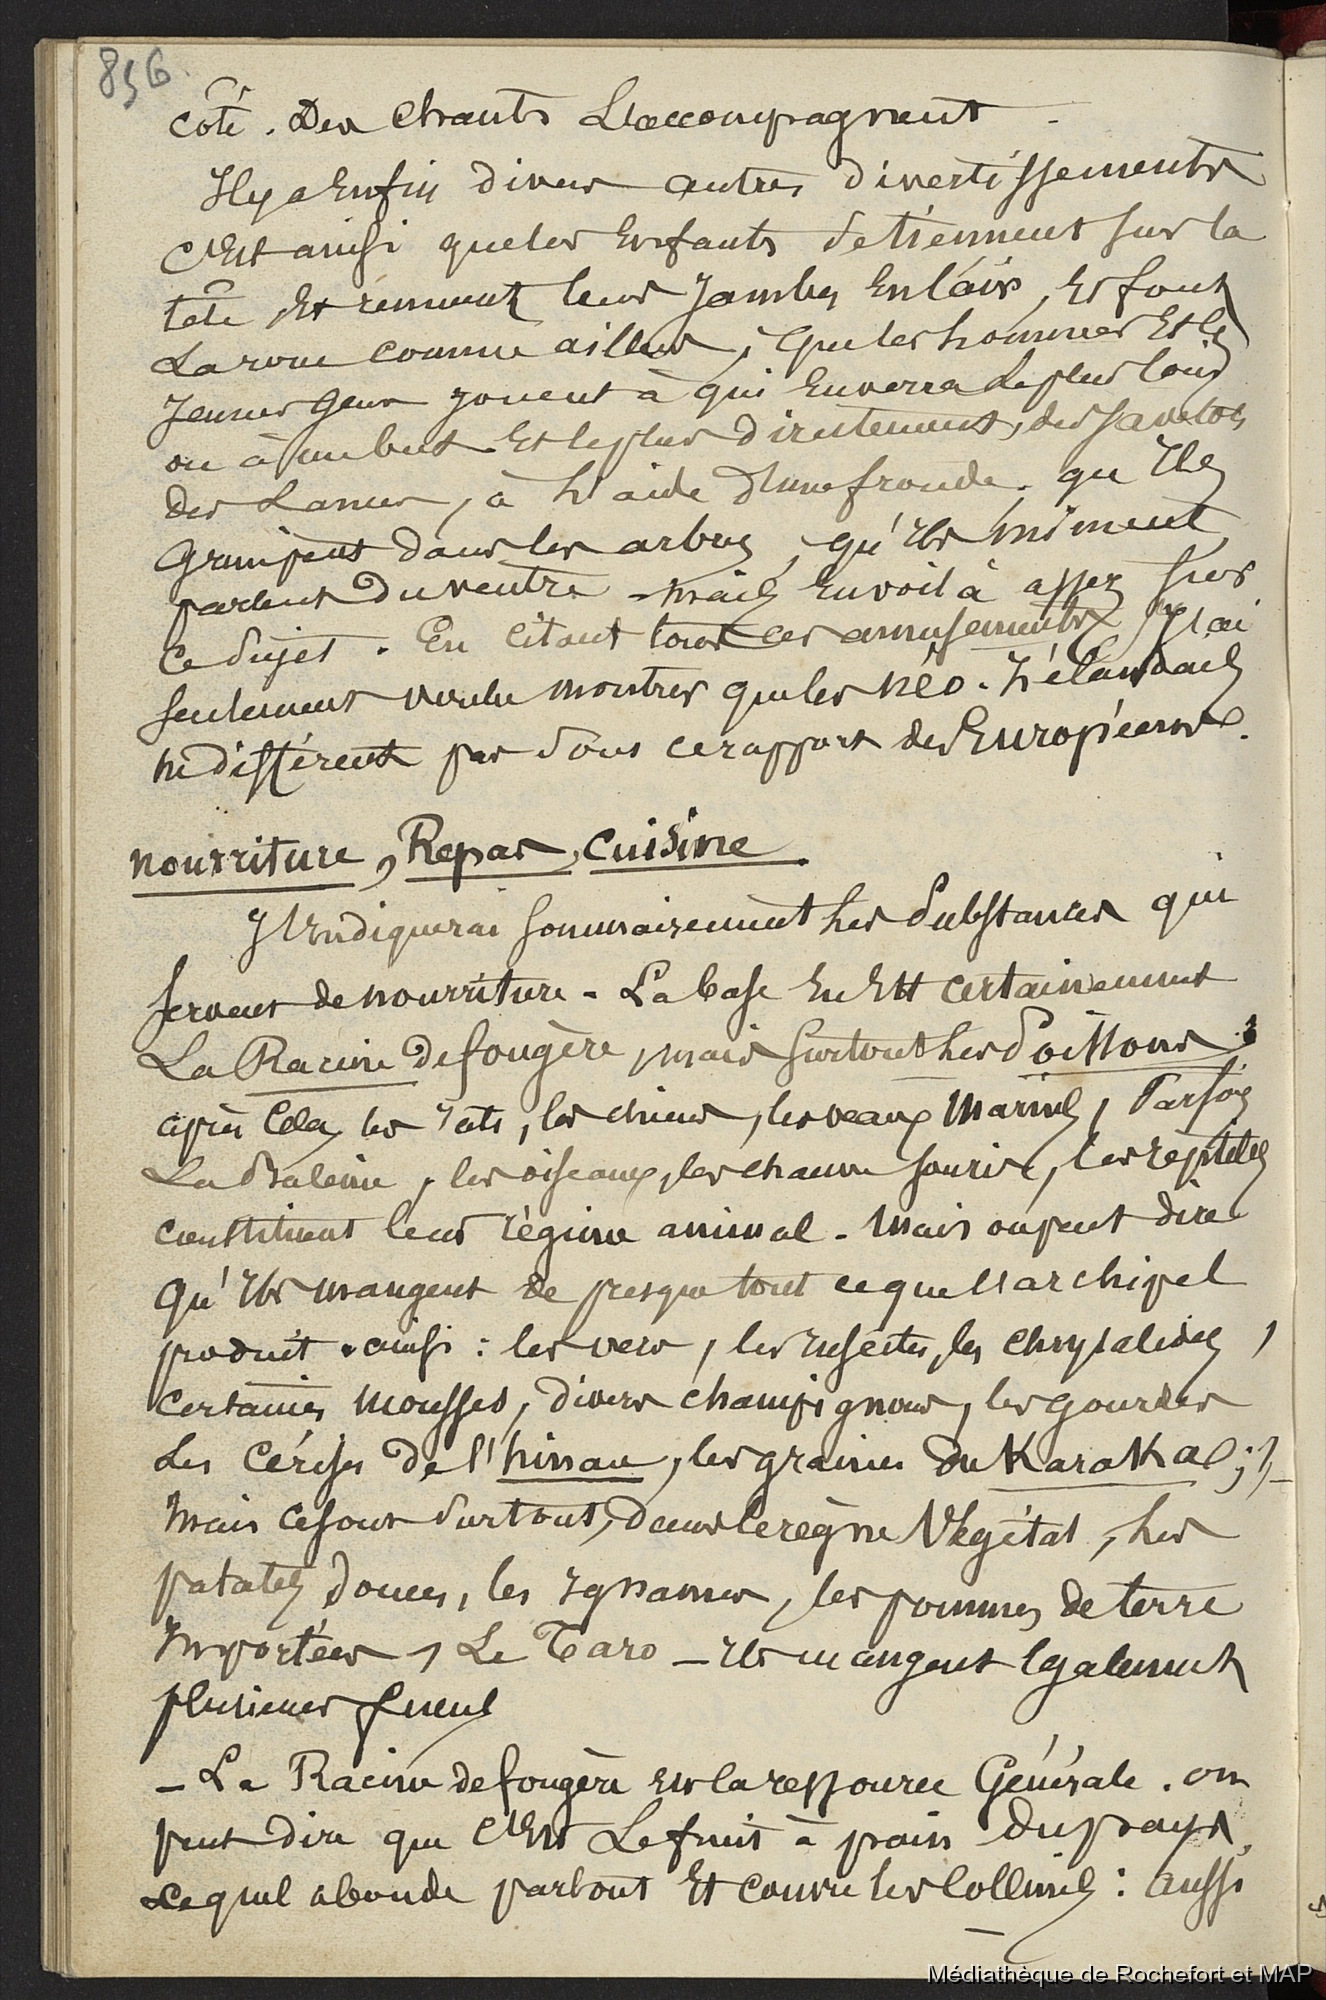 856
côté. Des chants L'accompagnent -
Il y a Enfin divers autres divertissements
C'Est ainsi que les Enfants se tiennent sur la
tête, Et remuent leurs Jambes En l'air, Et font
La roue comme ailleurs, que les hommes Et les
Jeunes Gens jouent à qui Enverra le plus loin
ou à un but Et le plus directement, des Javelots
des Lances, à L'aide d'une fronde. qu'Ils
Grimpent dans les arbres, qu'Ils miment,
parlent du ventre - mais En voilà assez sur
ce sujet. En citant tous ces amusements J'ai
seulement voulu montrer que les Néo-Zélandais
ne diffèrent pas sous ce rapport des Européens.
nourriture, Repas, cuisine.
J'Indiquerai sommairement Les Substances qui
servent de nourriture - La base En Est certainement
La Racine de fougère, mais surtout Les Poissons;
après Cela, les rats, les chiens, les veaux Marins, Parfois
La Baleine, les oiseaux, les chauve souris, les reptiles
constituent leur régime animal - Mais on peut dire
qu'Ils mangent de presque tout ce que L'archipel
produit. ainsi : les vers, les Insectes, les chrysalides,
certaines Mousses, divers champignons, les gourdes
Les Cérises de l'hinau, les graines du Karaka;
Mais ce sont surtout, dans le règne Végétal, Les
patates douces, les Ignames, les pommes de terre
Importées, Le Taro - Ils mangent également
plusieurs fucus
- La Racine de fougère Est la ressource Générale. on
peut dire que C'Est Le fruit à pain du pays,
Lequel abonde partout Et couvre Les Collines : aussi
Médiathèque de Rochefort et MAP